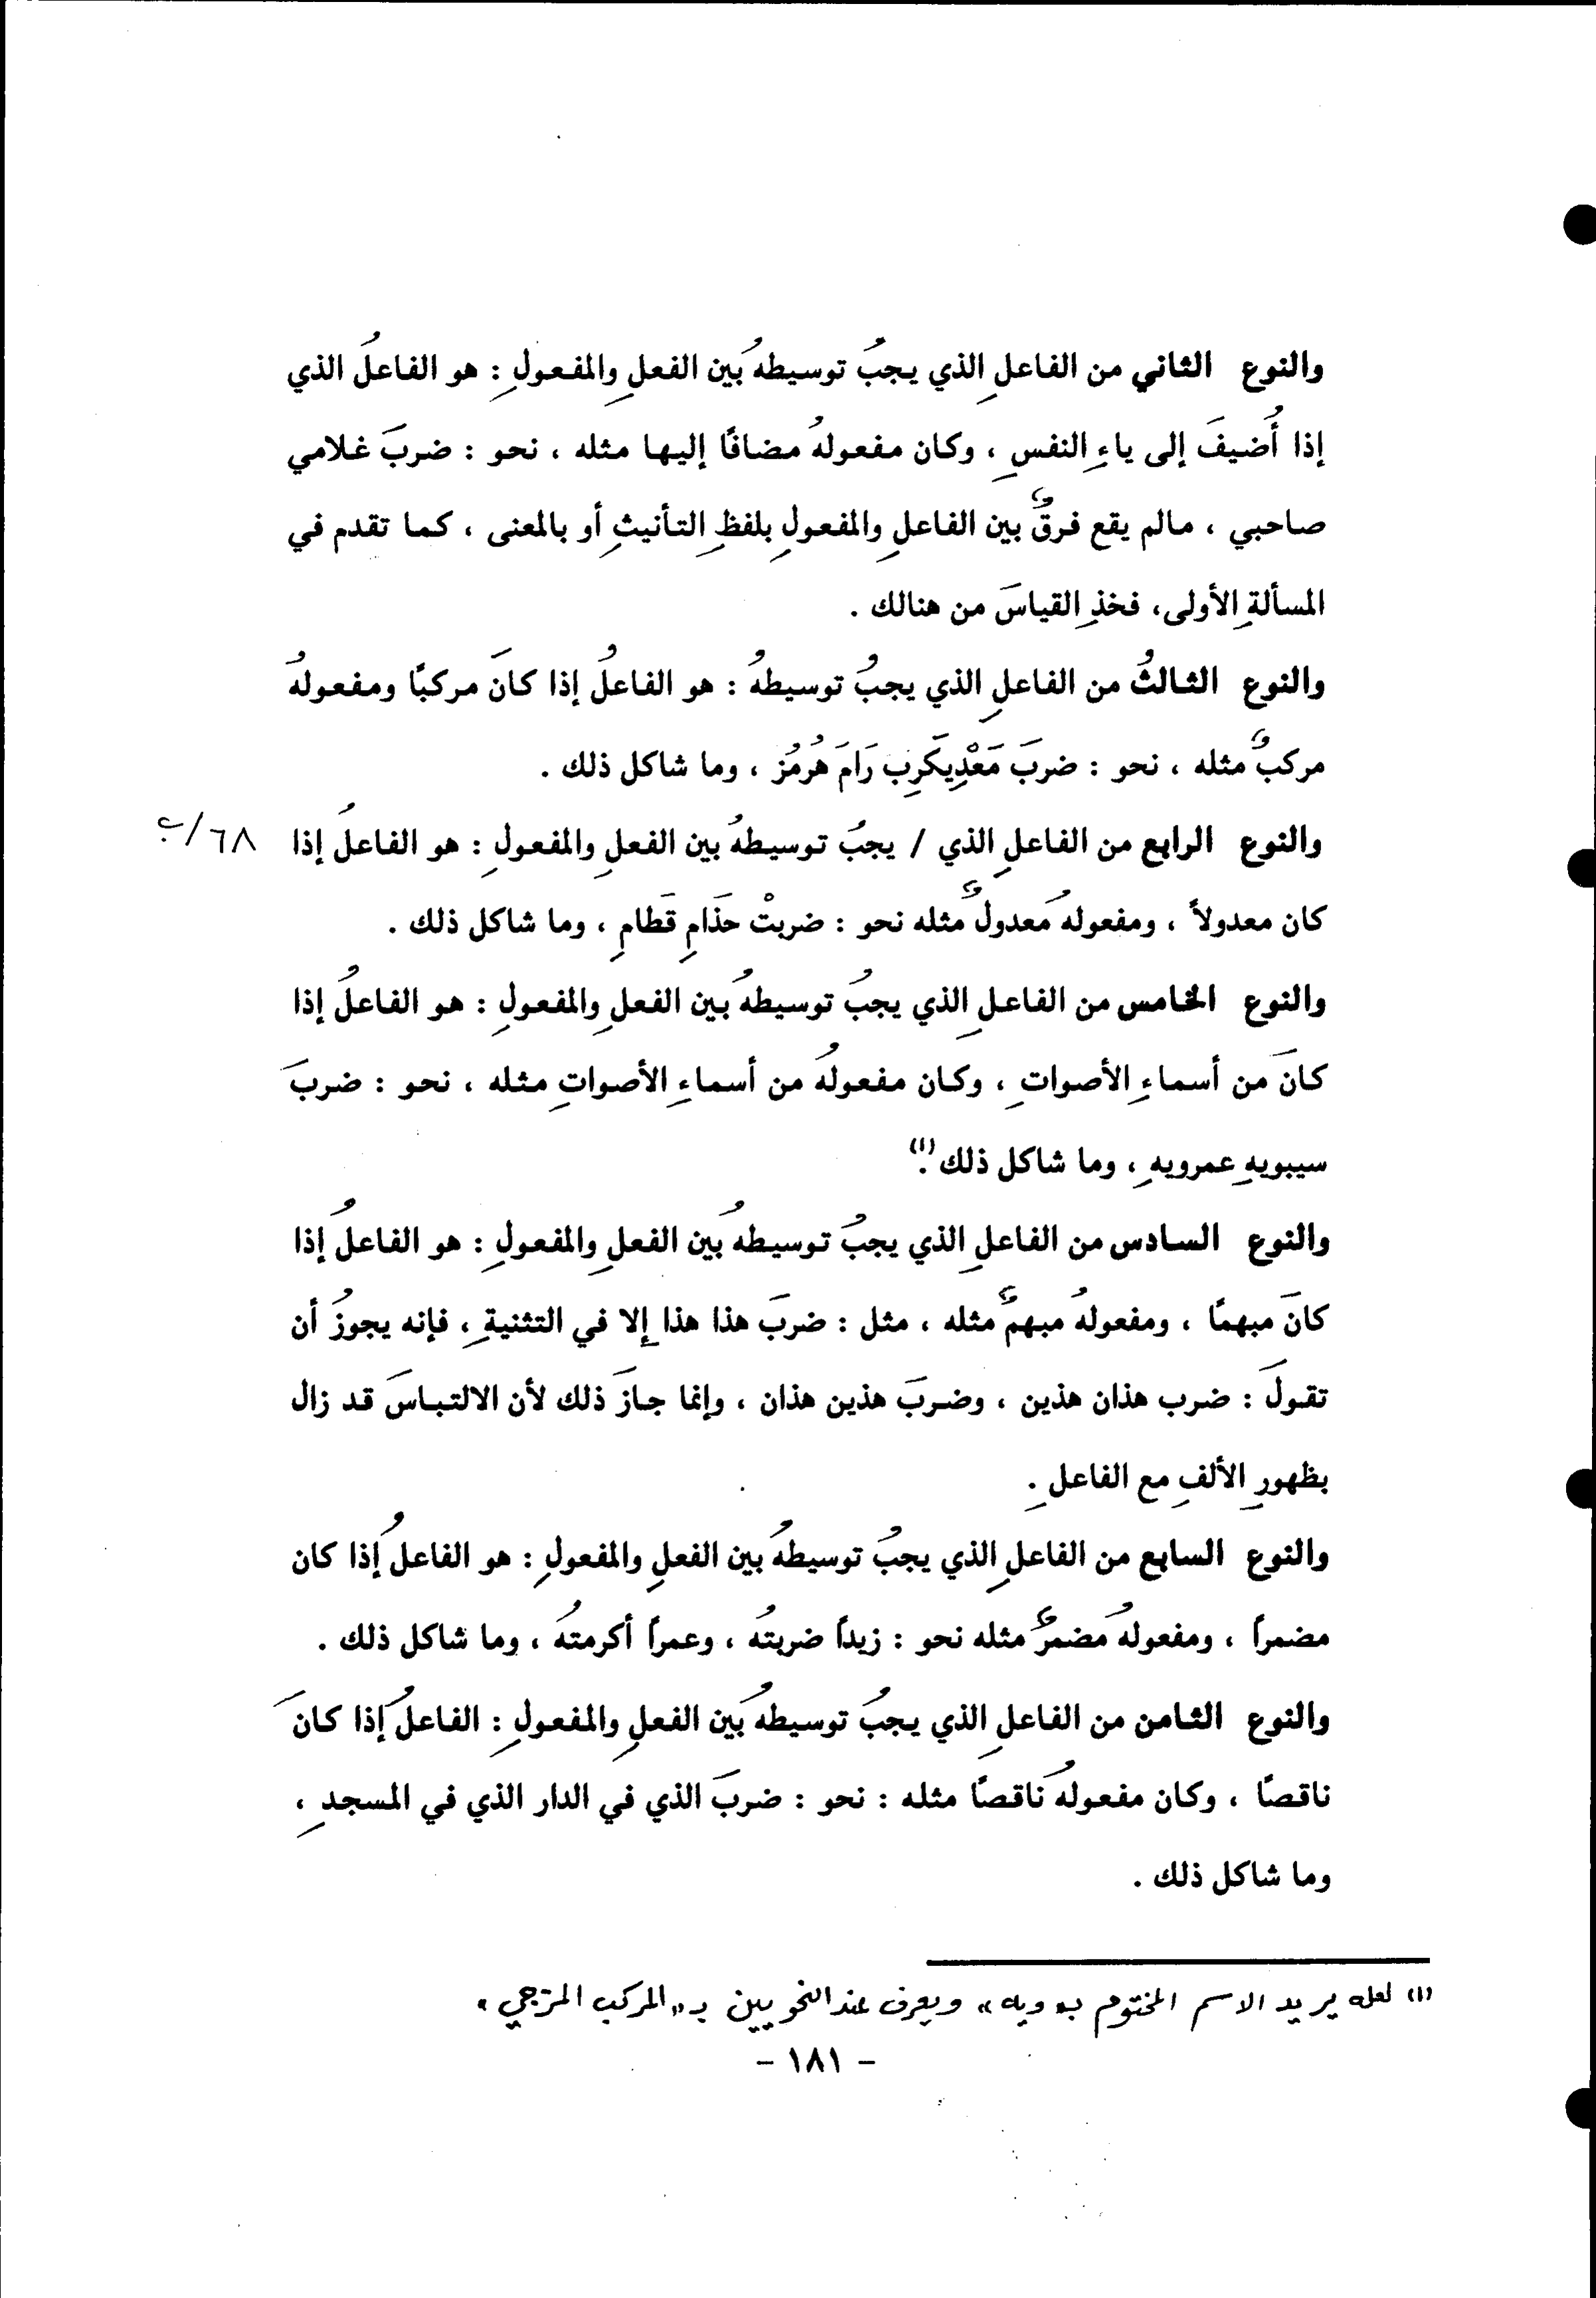 والنوع الثاني من الفاعلِ الذي يجبُ توسيطهُ بين الفعلِ والمفعولِ : هو الفاعلُ الذي
إذا أُضيفَ إلى ياءِ النفسِ ، وكان مفعولهُ مضافًا إليها مثله ، نحو : ضربَ غلامي
صاحبي ، مالم يقع فرقٌ بين الفاعلِ والمفعولِ بلفظِ التأنيثِ أو بالمعنى ، كما تقدم في
المسألةِ الأولى، فخذِ القياسَ من هنالك .
والنوع الثالثُ من الفاعلِ الذي يجبُ توسيطهُ : هو الفاعلُ إذا كانَ مركبًا ومفعولهُ
مركبٌ مثله ، نحو : ضربَ مَعْدِيكَرِب رَامَ هُرمُز ، وما شاكل ذلك .
والنوع الرابع من الفاعلِ الذي / يجبُ توسيطهُ بين الفعلِ والمفعولِ : هو الفاعلُ إذا ٦٨/ب
كان معدولاً ، ومفعولهُ معدولٌ مثله نحو : ضربتْ حَذَامِ قَطامِ ، وما شاكل ذلك .
والنوع الخامس من الفاعلِ الذي يجبُ توسيطهُ بين الفعلِ والمفعولِ : هو الفاعلُ إذا
كانَ من أسماءِ الأصواتِ ، وكان مفعولهُ من أسماءِ الأصواتِ مثله ، نحو : ضربَ
سيبويهِ عمرويهِ ، وما شاكل ذلك .(١)
والنوع السادس من الفاعلِ الذي يجبُ توسيطهُ بين الفعلِ والمفعولِ : هو الفاعلُ إذا
كانَ مبهمًا ، ومفعولهُ مبهمٌ مثله ، مثل : ضربَ هذا هذا إلا في التثنيةِ ، فإنه يجوزُ أن
تقولَ : ضرب هذان هذين ، وضربَ هذين هذان ، وإنما جازَ ذلك لأن الالتباسَ قد زال
بظهورِ الألفِ مع الفاعلِ .
والنوع السابع من الفاعلِ الذي يجبُ توسيطهُ بين الفعلِ والمفعولِ : هو الفاعلُ إذا كان
مضمراً ، ومفعولهُ مضمرٌ مثله نحو : زيداً ضربتهُ ، وعمراً أكرمتهُ ، وما شاكل ذلك .
والنوع الثامن من الفاعلِ الذي يجبُ توسيطهُ بين الفعلِ والمفعولِ : الفاعلُ إذا كانَ
ناقصًا ، وكان مفعولهُ ناقصًا مثله : نحو : ضربَ الذي في الدار الذي في المسجدِ ،
وما شاكل ذلك .
(١) لعله يريد الاسم المختوم بـ«ويه» ويعرف عند النحويين بـ«المركب المزجي»
- ١٨١ -